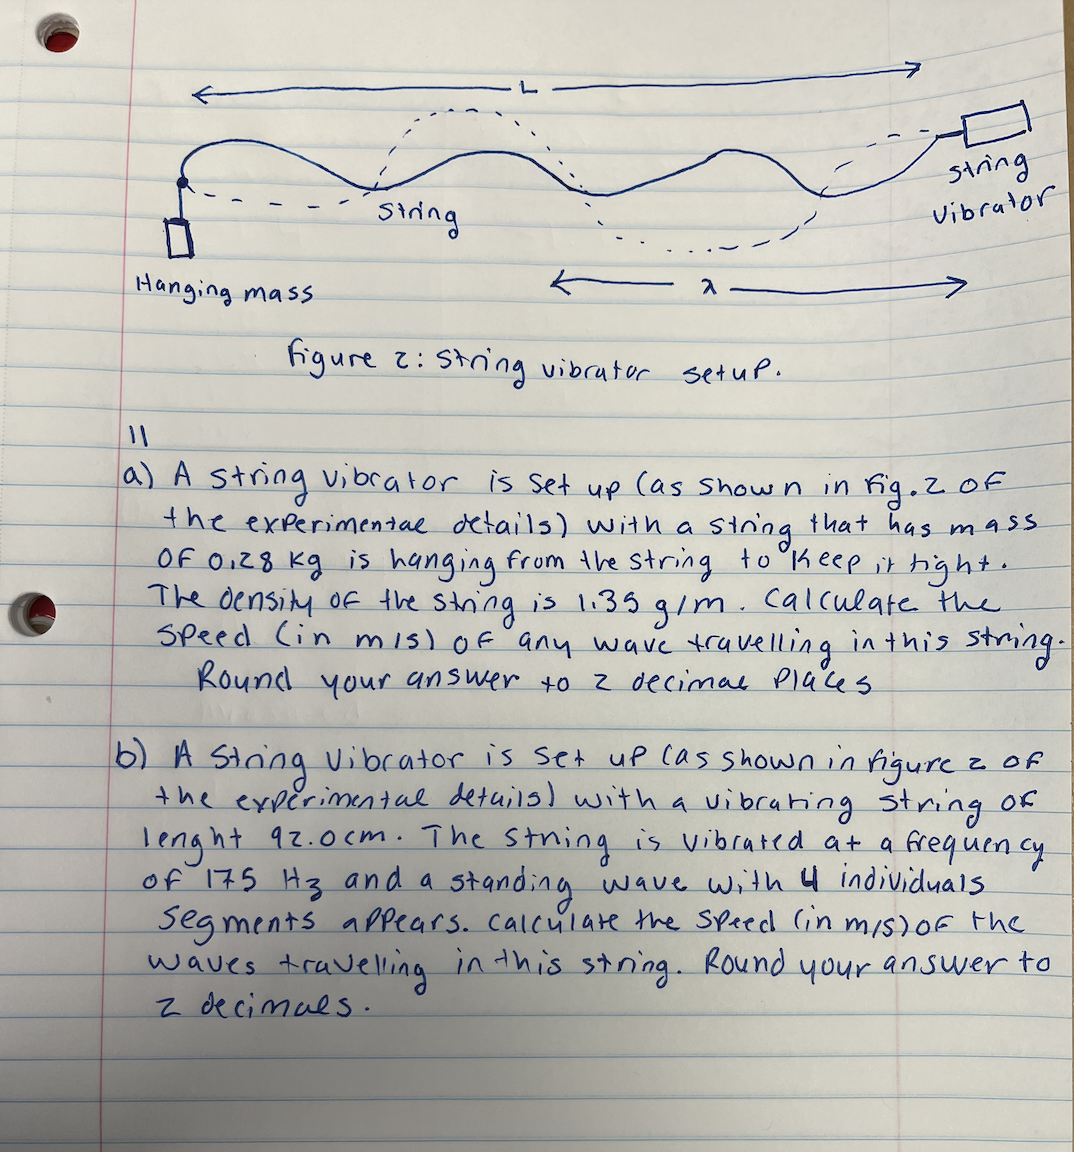 L
String
String
vibrator
Hanging mass
λ
figure 2: String vibrator setup.
11
a) A string vibrator is set up (as shown in Fig. 2 of
the experimentae details) with a string that has mass
of 0.28 kg is hanging from the string to keep it tight.
The density of the string is 1.35 g/m. Calculate the
speed (in m/s) of any wave travelling in this string.
Round your answer to 2 decimal places
b) A String vibrator is set up (as shown in figure 2 of
the experimental details) with a vibrating string of
lenght 92.0cm. The string is vibrated at a frequency
of 175 Hz and a standing wave with 4 individuals
segments appears. Calculate the speed (in m/s) of the
waves travelling in this string. Round your answer to
2 decimals.